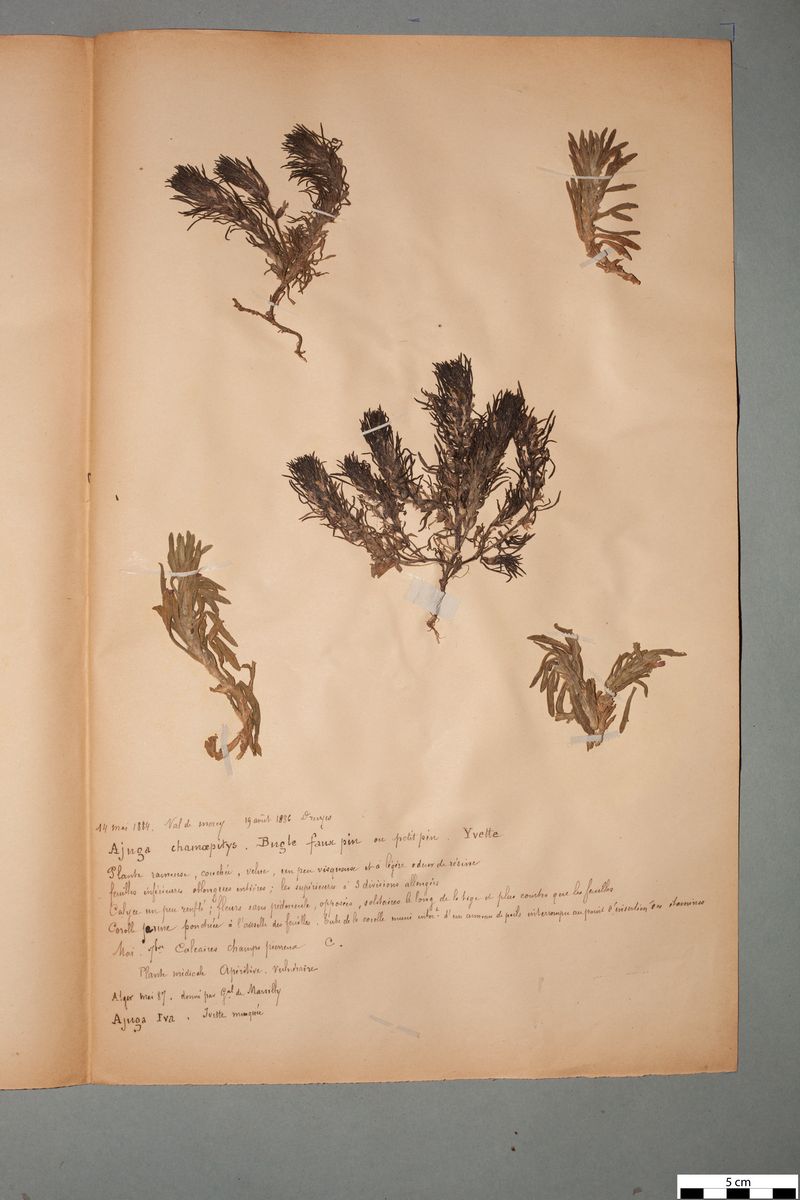 14 mai 1884. Val de mercy 19 août 1886 Druyes
Ajuga chamœpitys. Bugle faux pin ou petit pin. Yvette
Plante rameuse, couchée, velue, un peu visqueuse et à légère odeur de résine
feuilles inférieures oblongues entières; les supérieures à 3 divisions allongées
Calyce un peu renflé; fleurs sans pédoncule, opposées, solitaires le long de la tige et plus courtes que les feuilles
Coroll. jaune ponctuée à l'aisselle des feuilles. Tube de la corolle muni intért d'un anneau de poils interrompu au point d'insertion des étamines
Mai. 7bre Calcaires champs pierreux C.
Plante médicale Apéritive. Vulnéraire
Alger mai 87. donné par Gal de Marsilly
Ajuga Iva. Ivette musquée
5 cm